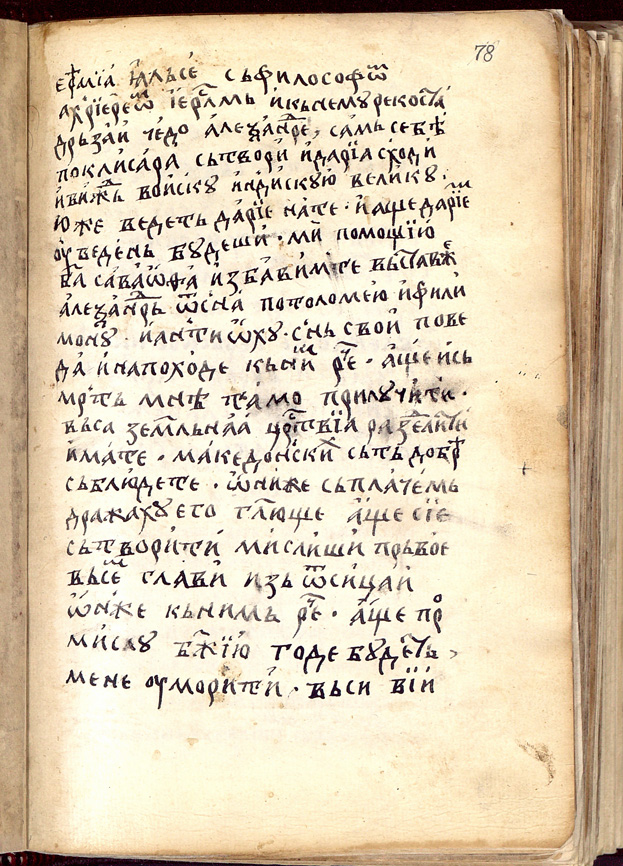 78
ермⷭ҇їа и҆ альсе́ съ философѿⷨ
а҆хрїерее́ѿⷨ і҆ерⷭ҇лмь и҆ къ нему рекоста̀
дрьзаи҆ че́до а҆леѯандре, самь себѣ
поклисара сьтвори и҆ дарїа сходи
и҆ виждь войскꙋ и҆ндискꙋю великꙋ ·
ю҆же ведеть дарїе на те · и҆ аще дарїеⷨ
оу҆веде́нь бꙋдеши · ми помощїю
ба҃ саваѡ҆ѳа и҆збавим те въставже
а҆леѯандрь ѿ сна̀ потоломею и҆ фили
монꙋ · и҆ антиѡ҆хꙋ · сⷩ҇ь свои пове
да и҆ на походе къ ниⷨ рⷱ҇е · а҆ще и҆ сь
мрⷮть мнѣ та́мо прилꙋчите ·
въса землънаа црⷭ҇твїа раздѣлити
и҆мате · македонски сьть добрⷷ
съблюдете · ѡ҆ни же съ пла́чемь
дражахꙋ его гл҃юще а҆ще сїе
сътворити мислиши прьвое
въсеⷨ глави изь ѿсицаи
ѡ҆н же къ нимь рⷱ҇е · а҆ще про
мислꙋ бж҃їю годе бꙋдеть
мене оу҆морити · въси вїи